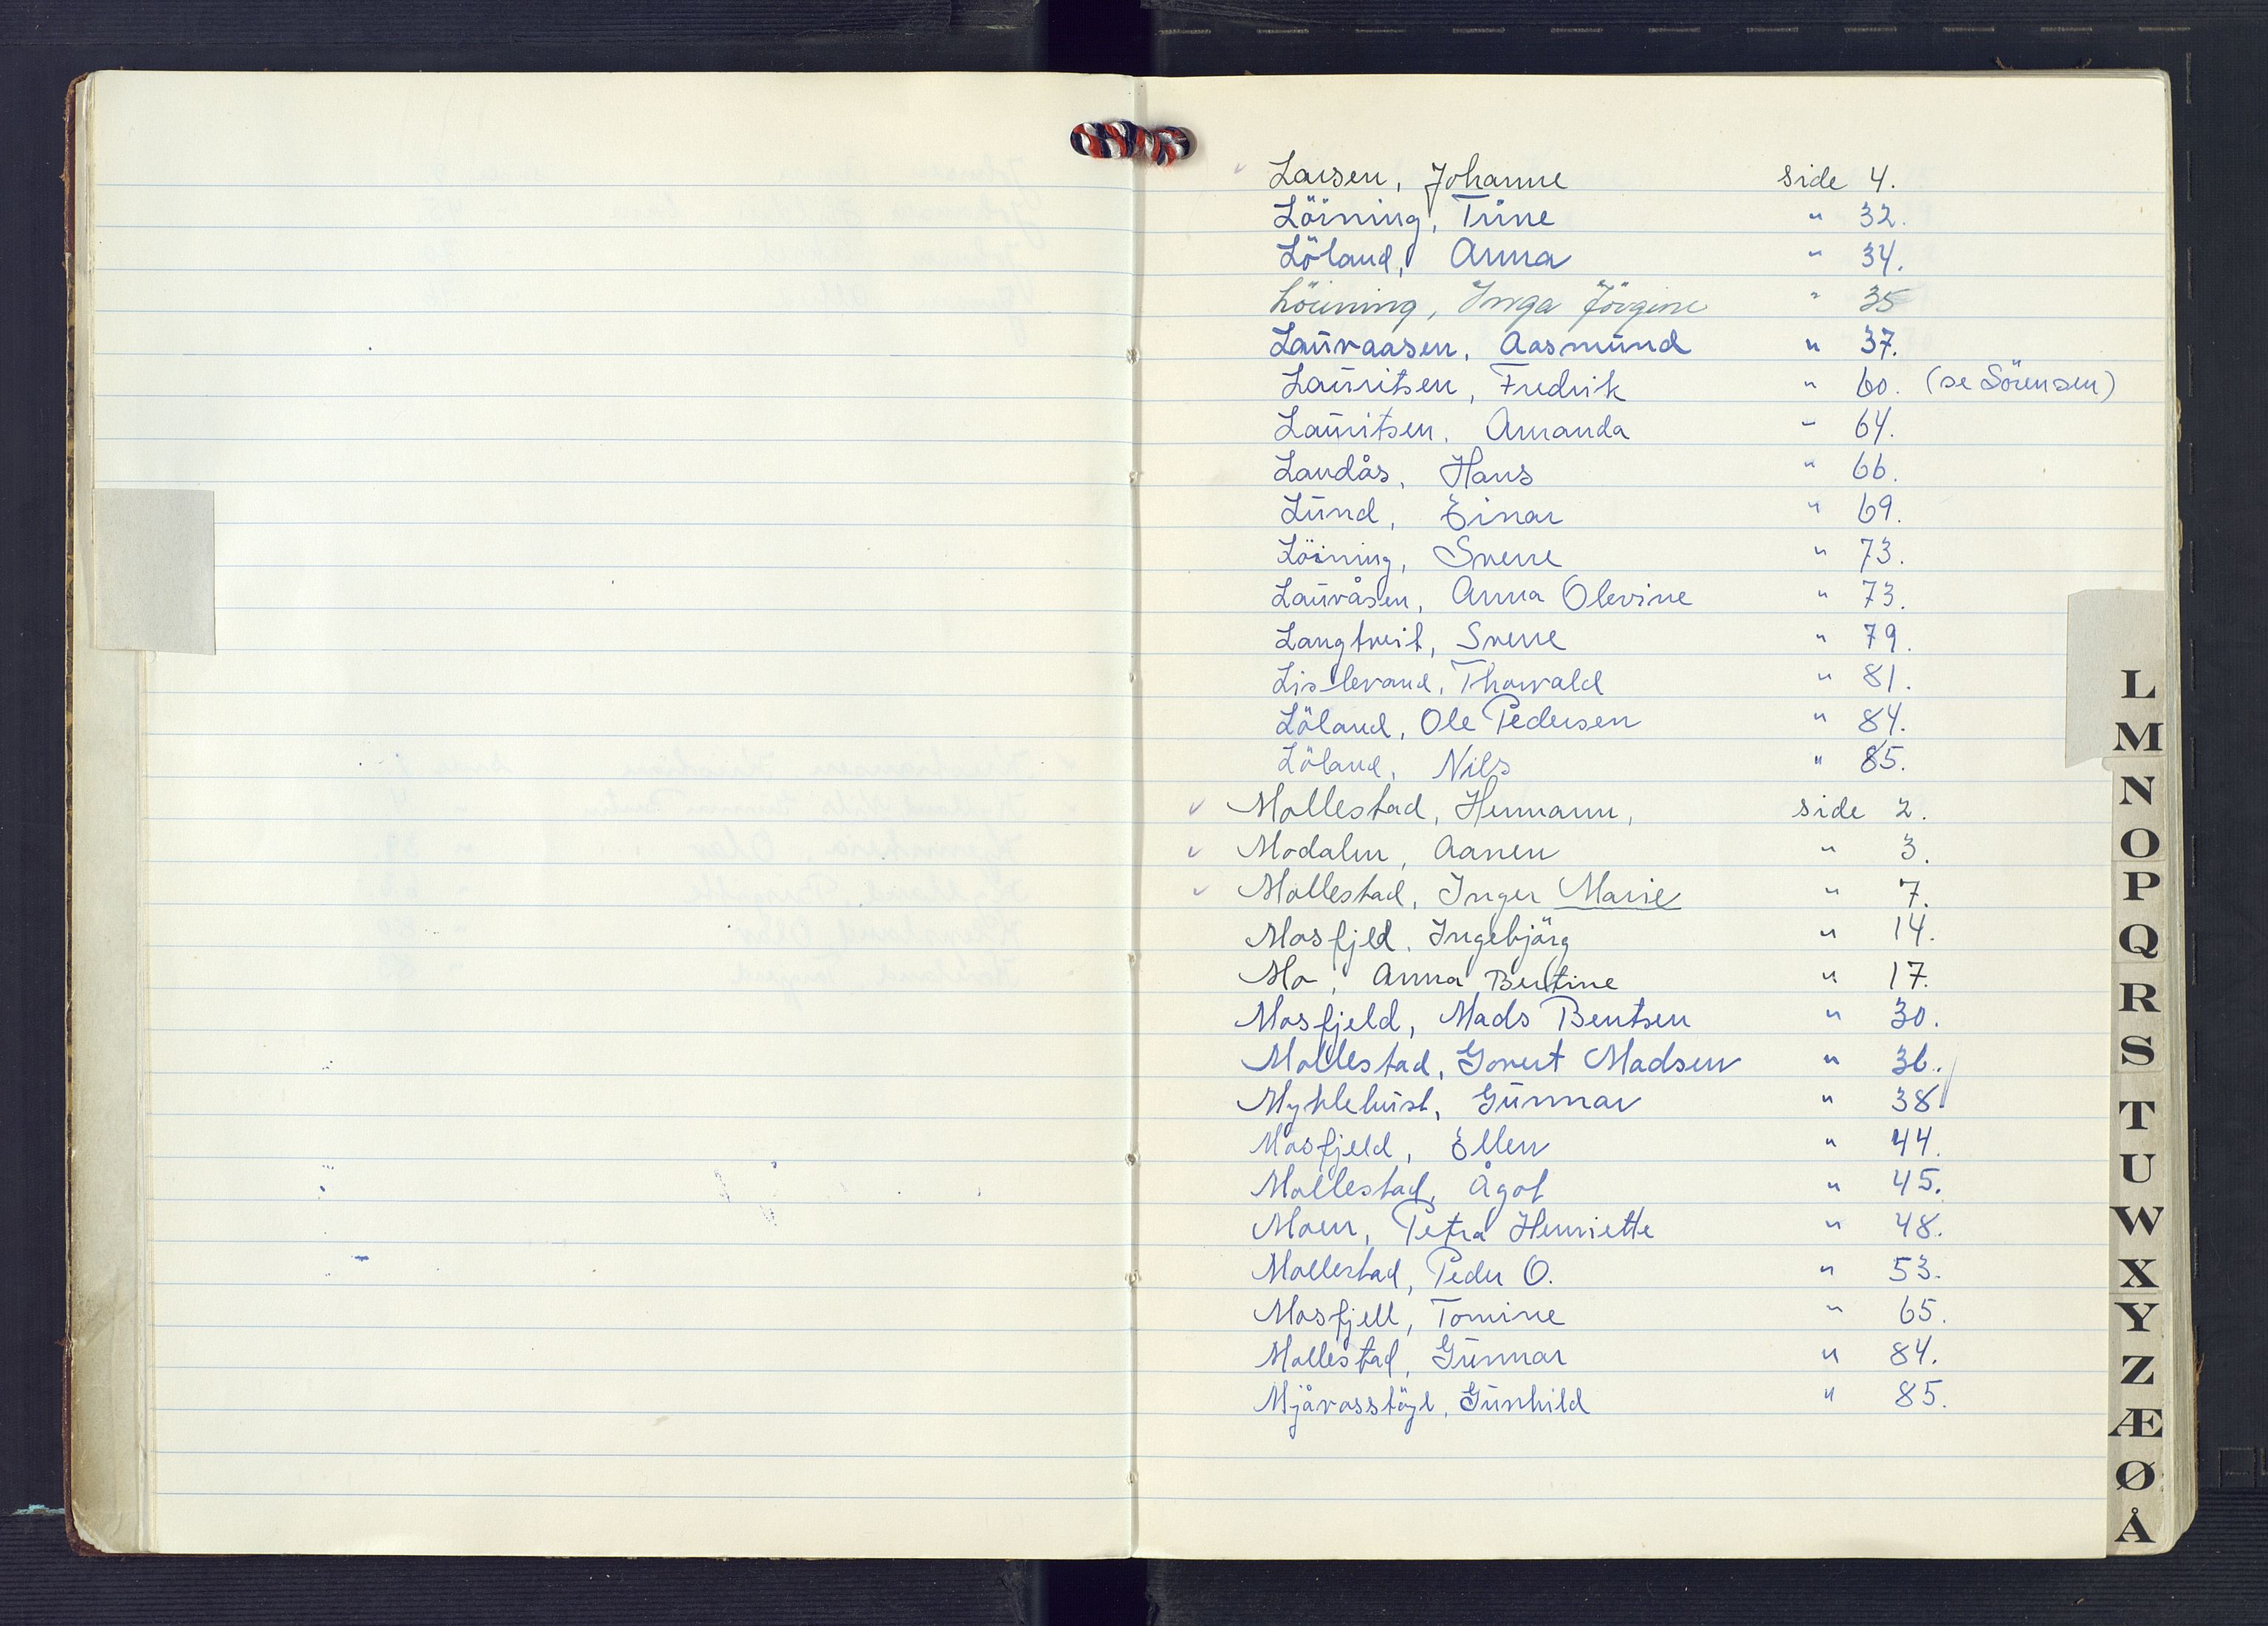 ✓ Larsen, Johanne side 4.
Löining, Trine " 32.
Löland, Anna " 34.
Löining, Inga Jörgine " 35
Lauvaasen, Aasmund " 37.
Lauritsen, Fredrik " 60. (se Sörensen)
Lauritsen, Amanda " 64.
Landås, Hans " 66.
Lund, Einar " 69.
Löining, Sverre " 73.
Lauvåsen, Anna Olevine " 73.
Langtveit, Sverre " 79.
Lislevand, Thorvald " 81.
Löland, Ole Pedersen " 84.
Löland, Nils " 85.
✓ Mollestad, Hermann, side 2.
✓ Modalen, Aanen " 3.
✓ Mollestad, Inger Marie " 7.
Mosfjeld, Ingebjörg " 14.
Mo, Anna Bertine " 17.
Mosfjeld, Mads Bentsen " 30.
Mollestad, Govert Madsen " 36.
Myklebust, Gunnar " 38.
Mosfjeld, Ellen " 44.
Mollestad, Ågot " 45.
Moen, Petra Henriette " 48.
Mollestad, Peder O. " 53.
Mosfjell, Tomine " 65.
Mollestad, Gunnar " 84.
Mjåvasstöyl, Gunhild " 85.
L
M
N
O
P
Q
R
S
T
U
W
X
Y
Z
Æ
Ø
Å